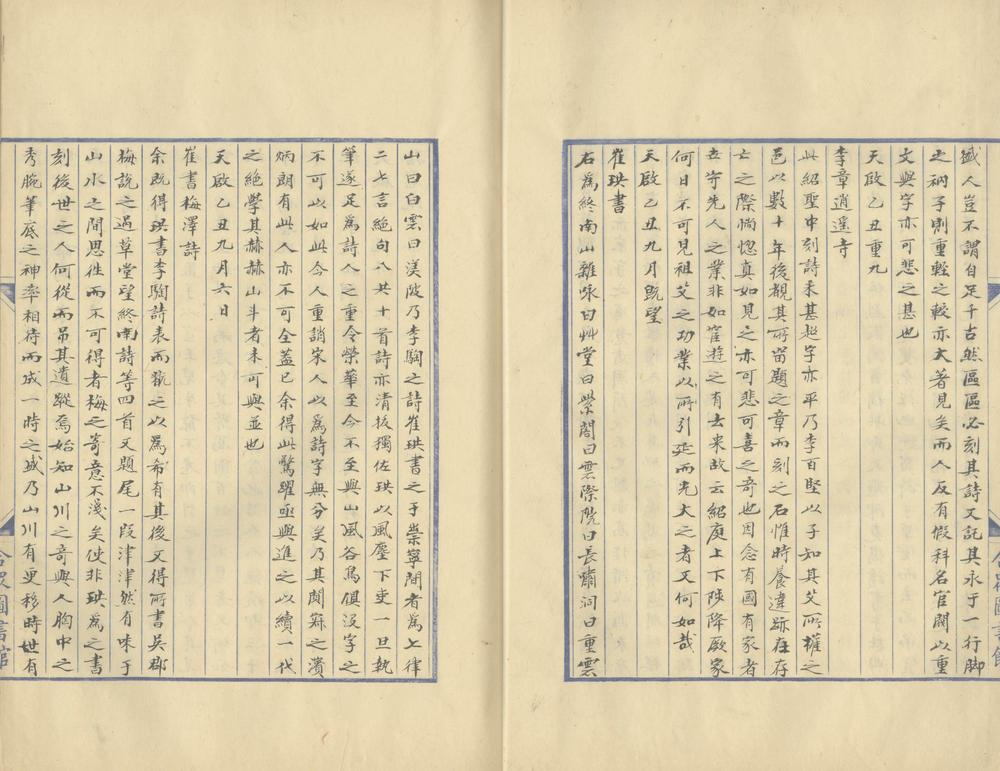 盛人豈不謂自足千古然區區必刻其詩又託其永于一行脚
之衲子則重輕之較亦大著見矣而人反有假科名官閥以重
文與字亦可悲之甚也
天啟乙丑重九
李章逍遥寺
此紹聖中刻詩未甚超字亦平乃李百堅以子知其父所權之
邑以數十年後觀其所留題之章而刻之石惟時養違跡在存
亡之際惝惚真如見之亦可悲可喜之奇也因念有國有家者
去守先人之業非如宦遊之有去来故云紹庭上下陟降厥家
何日不可見祖父之功業以所引延而光大之者又何如哉
天啟乙丑九月既望
崔珙書
右為終南山雜咏曰艸堂曰紫閣曰雲際院曰長嘯洞曰重雲
山曰白雲曰渼陂乃李騊之詩崔珙書之于崇寧間者為上律
二七言絶句八共十首詩亦清拔獨佐珙以風塵下吏一旦執
筆遂足為詩人之重令榮華至今不至與山風谷鳥俱没字之
不可以如此今人重誚宋人以為詩字無分矣乃其闃寂之濱
炳朗有此人亦不可全蓋已余得此驚躍亟與進之以續一代
之絶學其赫赫山斗者未可與並也
天啟乙丑九月六日
崔書梅澤詩
余既得珙書李騊詩表而欷之以為希有其後又得所書吴郡
梅説之過草堂望終南詩等四首又題尾一段津津然有味于
山水之間思徃而不可得者梅之寄意不淺矣使非珙為之書
刻後世之人何從而吊其遺蹤焉始知山川之奇與人胸中之
秀腕筆底之神率相待而成一時之盛乃山川有更移時世有
合眾圖書館
合眾圖書館